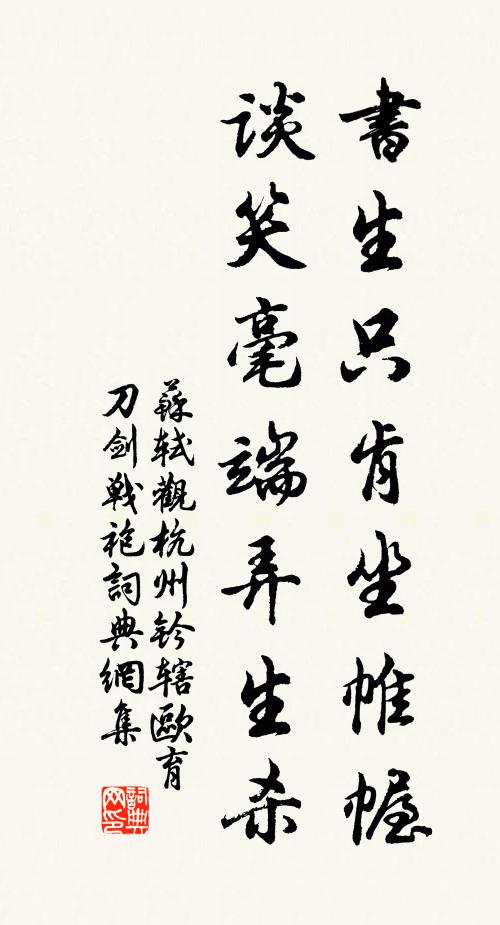 書生只肯坐帷幄
谈笑毫端弄生杀
蘇軾觀杭州鈐轄歐育
刀劍戰袍詞典網集
詞典网印